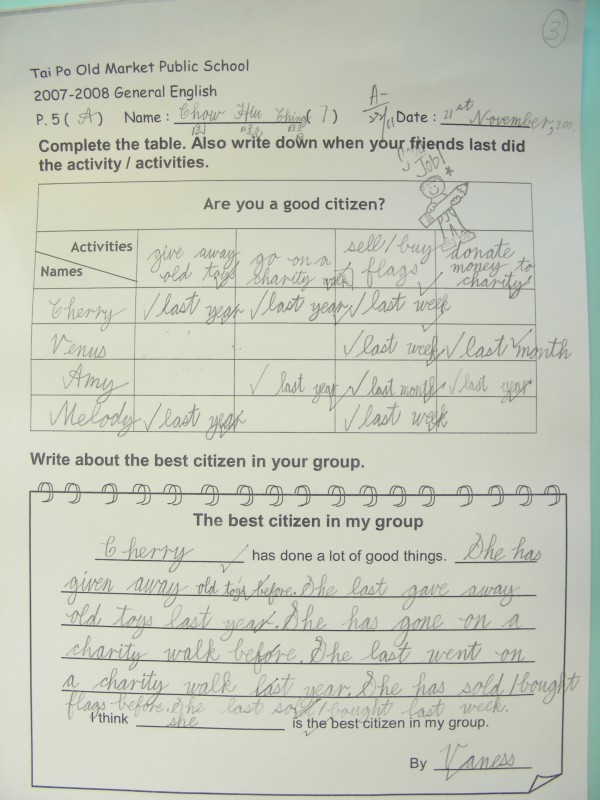 3
Tai Po Old Market Public School
2007-2008 General English
P. 5 ( A ) Name : Chow Hiu Ching ( 7 ) A- 22/11 Date : 21st November, 200
Complete the table. Also write down when your friends last did
the activity / activities.
Good JOB!
Are you a good citizen?
Activities
Names
give away old toys
go on a charity walk
sell/buy flags
donate money to charity
Cherry ✓ last year ✓ last year ✓ last week
Venus ✓ last week ✓ last month
Amy ✓ last year ✓ last month ✓ last year
Melody ✓ last year ✓ last week
Write about the best citizen in your group.
The best citizen in my group
Cherry has done a lot of good things. She has
given away old toys before. She last gave away
old toys last year. She has gone on a
charity walk before. She last went on
a charity walk last year. She has sold/bought
flags before. She last sold/bought last week.
I think she is the best citizen in my group.
By Vaness